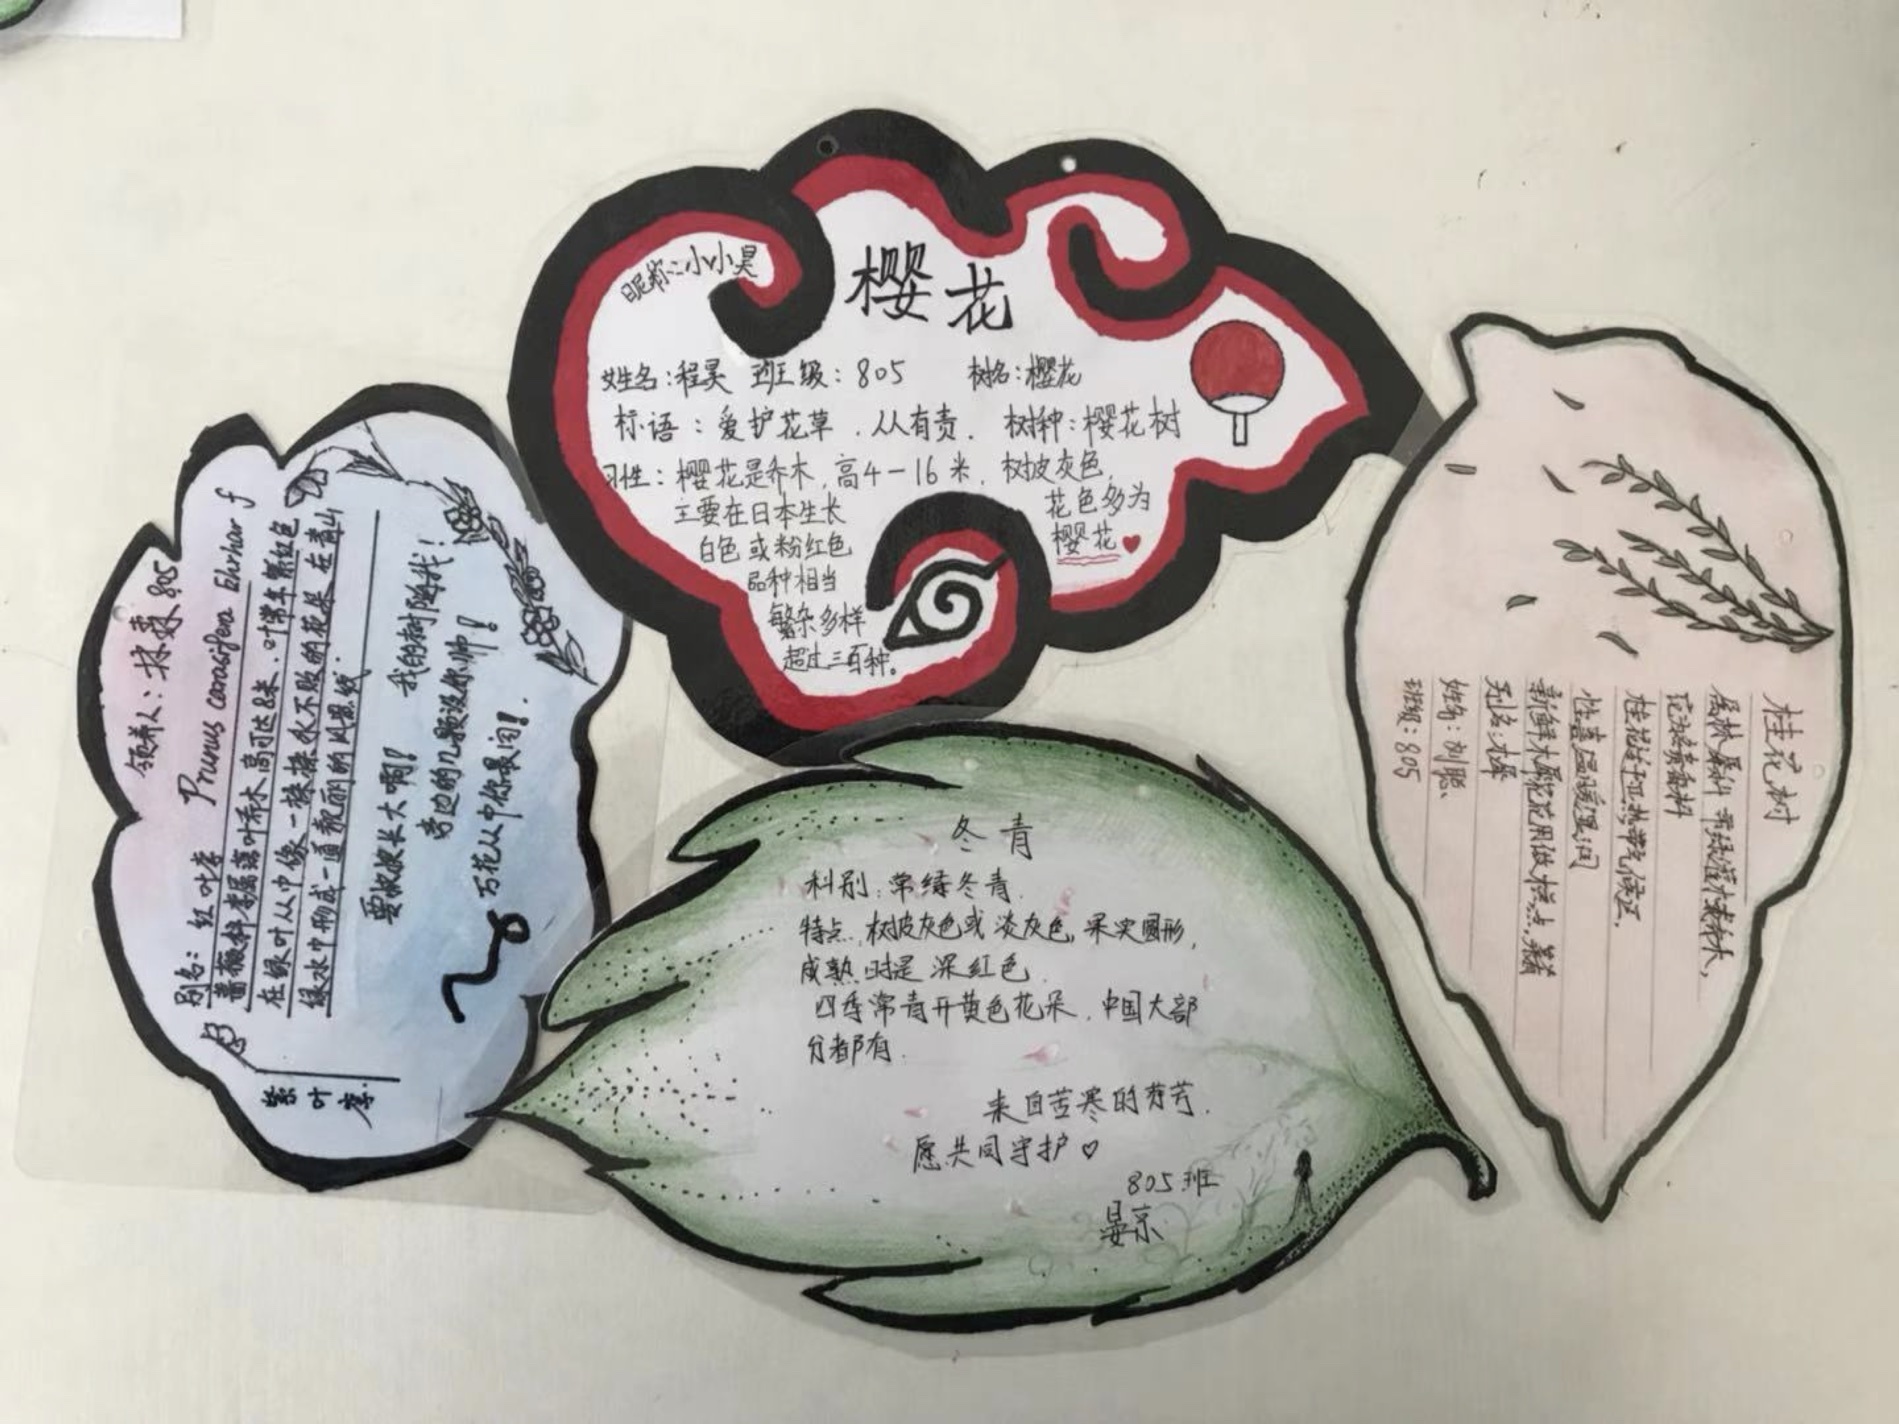 昵称:小小昊
樱花
姓名:程昊 班级:805 树名:樱花
标语:爱护花草.从有责. 树种:樱花树
习性:樱花是乔木,高4-16米,树皮灰色,
主要在日本生长 花色多为
白色或粉红色 樱花
品种相当
繁杂多样
超过三百种。
紫叶李
别名:红叶李 Prunus cerasifera Ehrhar f
蔷薇科李属落叶乔木高可达8米.叶常年紫红色
在绿叶从中像一株株永不败的花朵.在青山
绿水中形成一道靓丽的风景线.
领养人: 805
要快快长大啊! 我的树随我!
旁边的几颗没你帅!
万花从中你最闪!
冬青
科别:常绿冬青.
特点,树皮灰色或淡灰色,果实圆形,
成熟时是深红色.
四季常青开黄色花朵,中国大部
分都有.
来自苦寒的芬芳.
愿共同守护♡
805班
晏京
桂花树
常绿灌木或乔木,
桂花在于亚热带气候区.
性喜温暖湿润
新鲜木犀花用做
别名:木犀
姓名:刘聪
班级:805